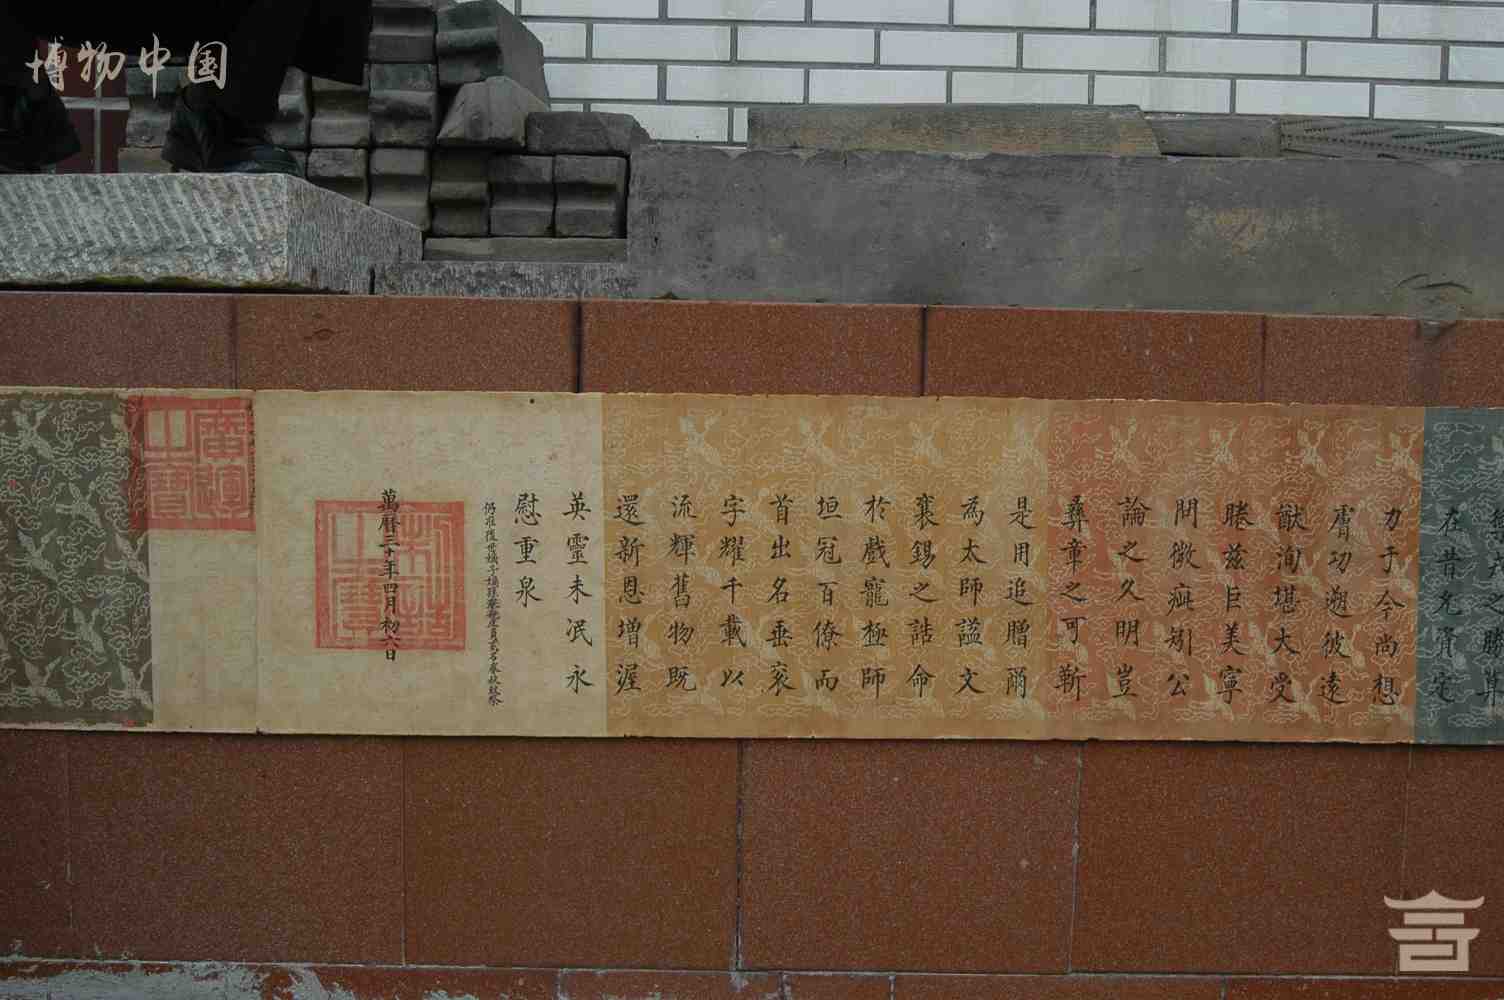 博物中国
在昔允資定
力于今尚想
膚功遡彼遠
猷洵堪大受
睠茲巨美寧
問微疵矧公
論之久明豈
彝章之可靳
是用追贈爾
為太師謚文
襄錫之誥命
於戲寵極師
垣冠百僚而
首出名垂袞
字耀千載以
流輝舊物既
還新恩增渥
英靈未泯永
慰重泉
萬曆三十年四月初六日